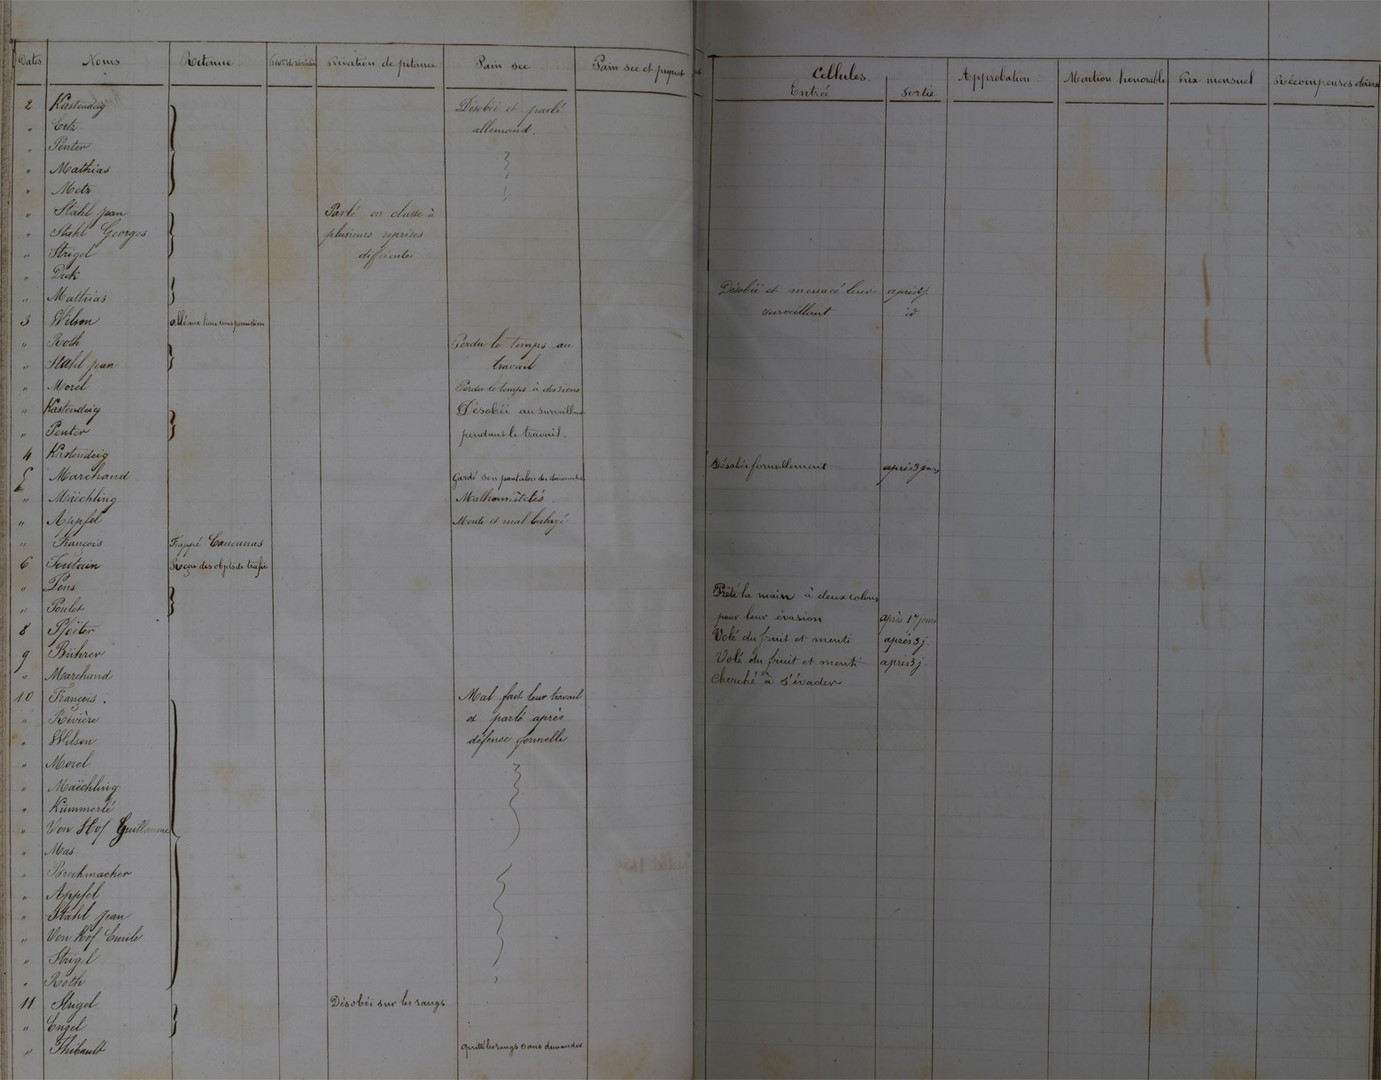 Dates Noms Retenue Privation de pitance Pain sec Pain sec et piquet Cellules Entrée Sortie Approbation Mention honorable Prix mensuel Récompenses
2 Kastendeig Désobéi et parlé
" Ertz allemand.
" Penter
" Mathias
" Metz
" Stahl Jean Parlé en classe à
" Stahl Georges plusieurs reprises
" Strigel différentes
" Dick
" Mathias Désobéi et menacé leur surveillant après 2 j. id
3 Wilson
" Roth Perdu le temps au
" Stahl Jean travail
" Morel Perdu le temps à des riens
" Kastendeig Désobéi au surveillant
" Penter pendant le travail.
4 Kastendeig Désobéi formellement après 3 jours
5 Marchand Gardé son pantalon du dimanche
" Maëchling Malhonnêtetés.
" Appfel Menti et mal
" François Frappé
6 Toutain Reçu des objets de trafic
" Pons Prêté la main à deux colons
" Poulet pour leur évasion après 17 jours
8 Pfister Volé du fruit et menti après 3 j.
9 Bührer Volé du fruit et menti après 3 j.
" Marchand Cherché à s'évader
10 François. Mal fait leur travail
" Rivière et parlé après
" Wilson défense formelle
" Morel
" Maëchling
" Kümmerlé
" Von Hof Guillaume
" Mas
" Brechmacher
" Appfel
" Stahl Jean
" Von Hof Emile
" Strigel
" Roth
11 Strigel Désobéi sur les rangs
" Engel
" Thibault Quitté les rangs sans demander